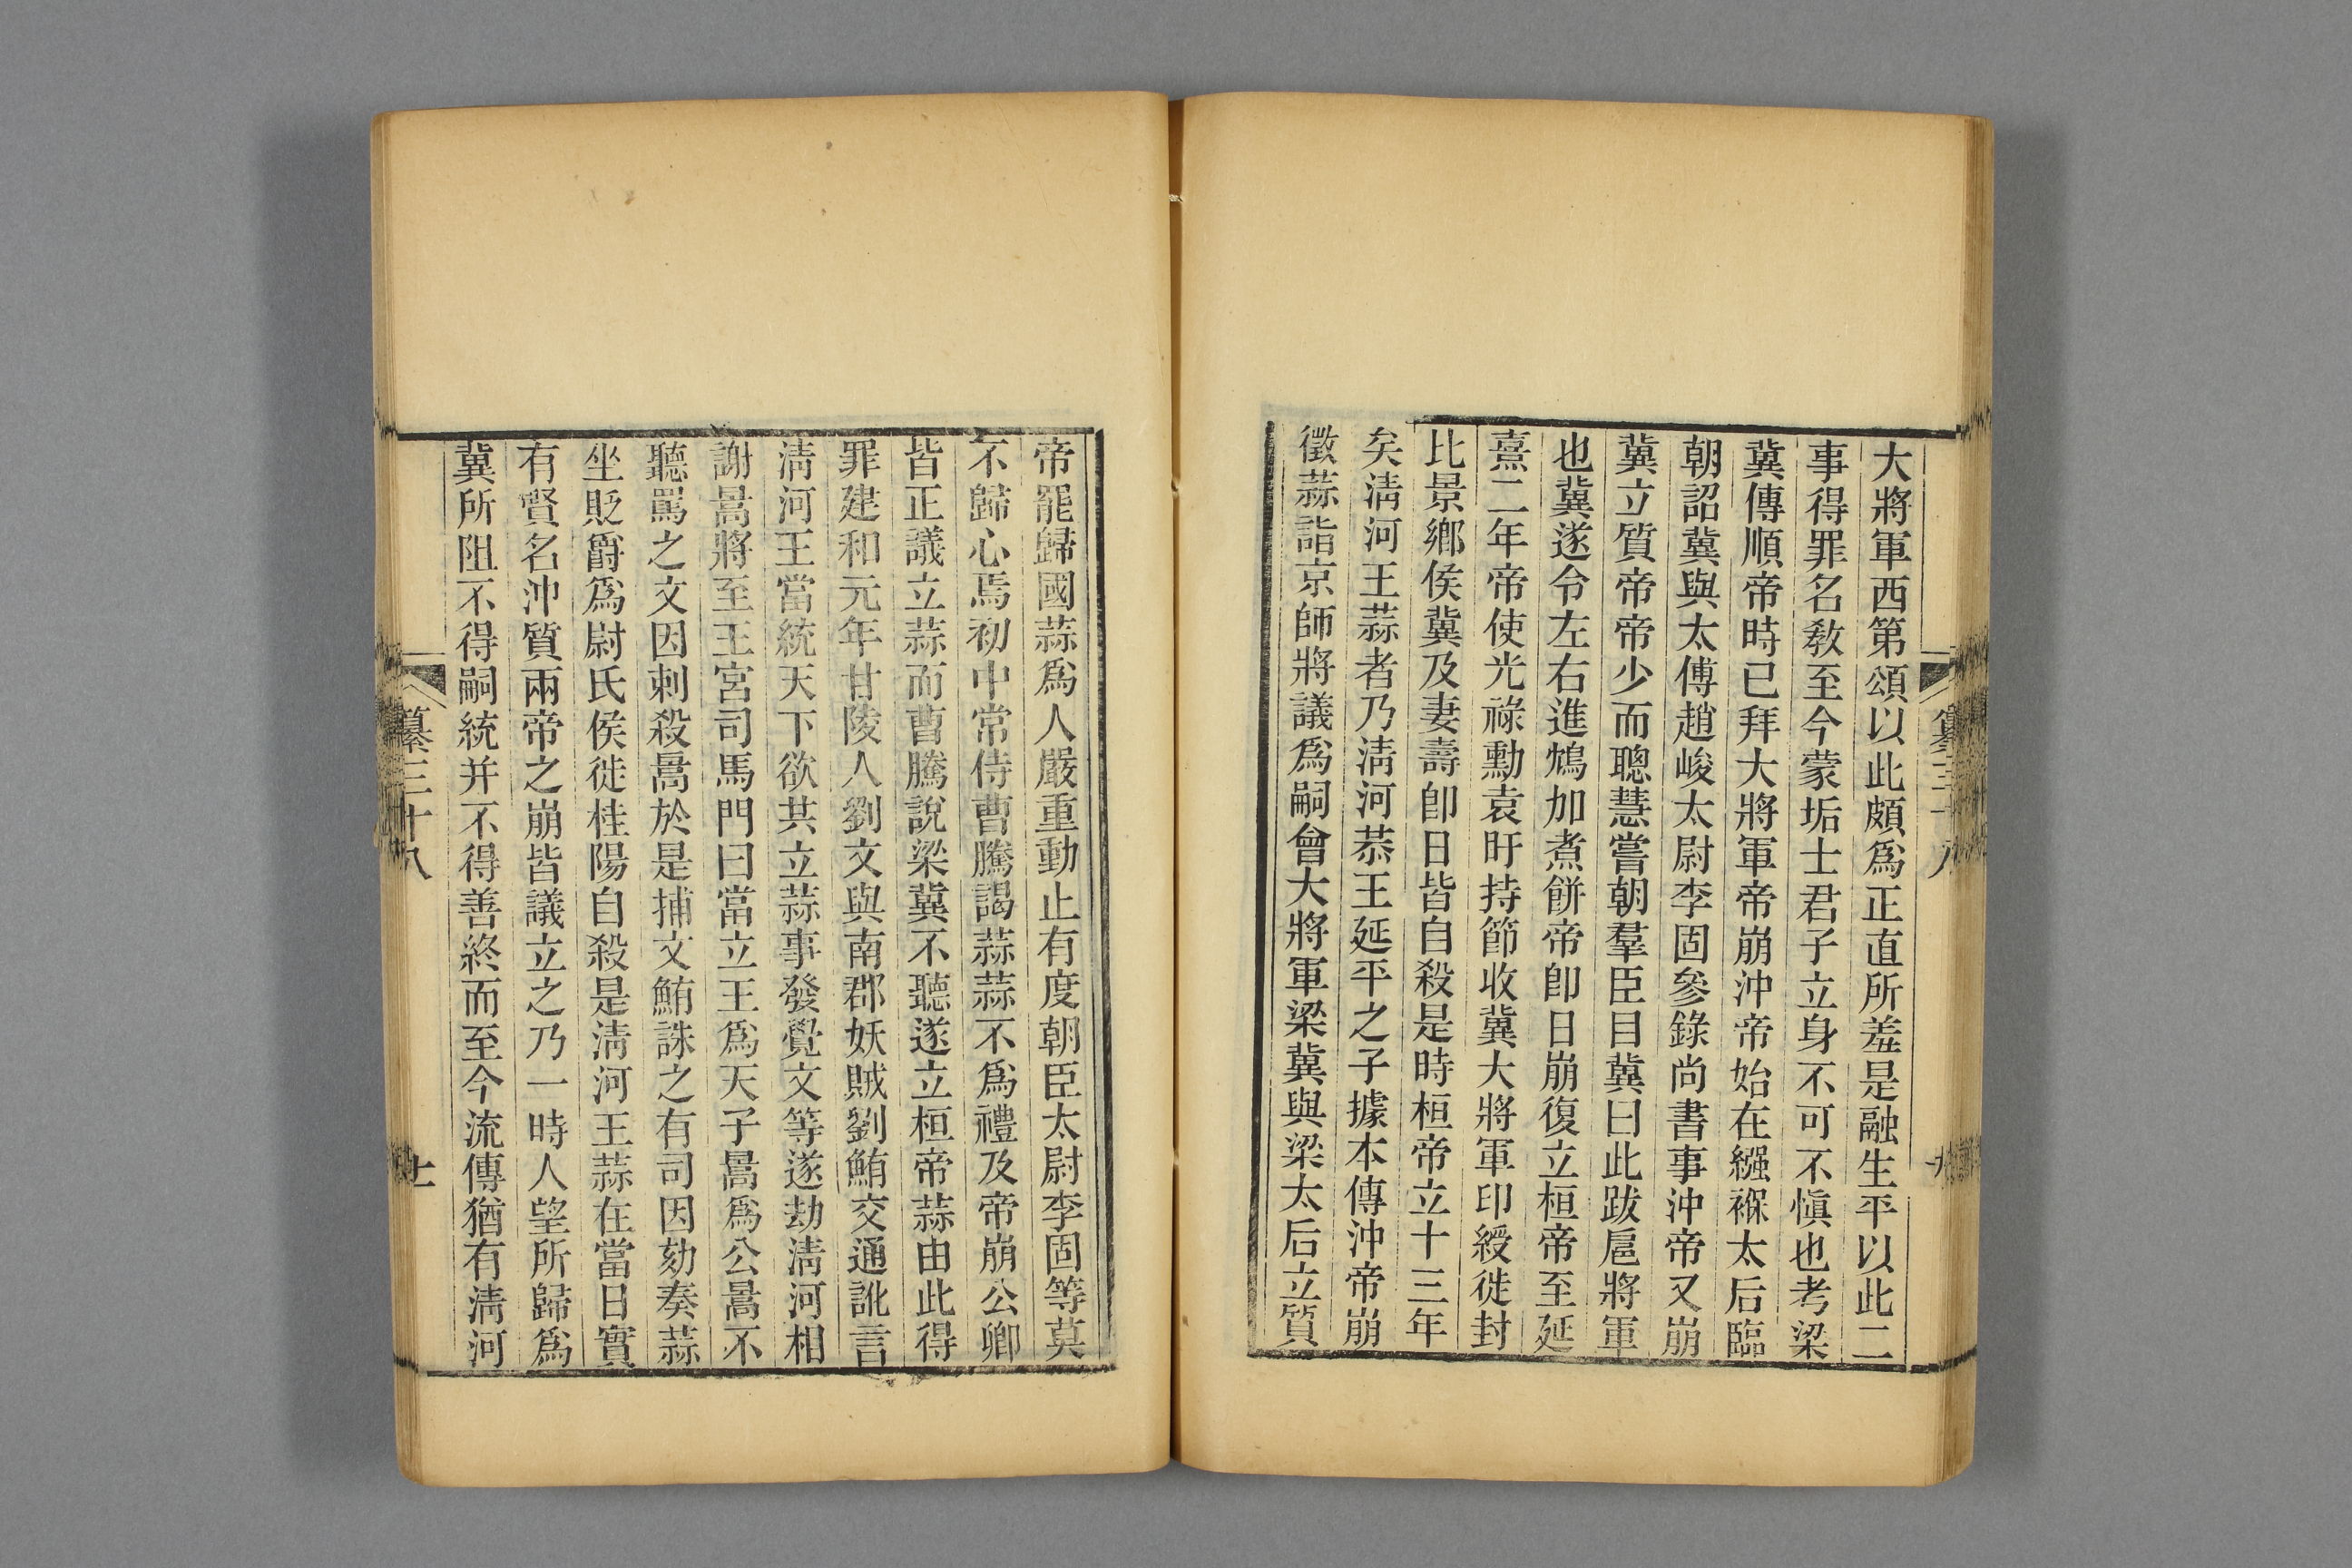 大將軍西第頌以此頗爲正直所羞是融生平以此二
事得罪名敎至今蒙垢士君子立身不可不愼也考梁
冀傳順帝時已拜大將軍帝崩沖帝始在繦褓太后臨
朝詔冀與太傅趙峻太尉李固參錄尚書事沖帝又崩
冀立質帝帝少而聰慧嘗朝羣臣目冀曰此跋扈將軍
也冀遂令左右進鴆加煮餅帝卽日崩復立桓帝至延
熹二年帝使光祿勳袁盱持節收冀大將軍印綬徙封
比景鄉侯冀及妻壽卽日皆自殺是時桓帝立十三年
矣淸河王蒜者乃淸河恭王延平之子據本傳沖帝崩
徵蒜詣京師將議爲嗣會大將軍梁冀與梁太后立質
帝罷歸國蒜爲人嚴重動止有度朝臣太尉李固等莫
不歸心焉初中常侍曹騰謁蒜蒜不爲禮及帝崩公卿
皆正議立蒜而曹騰說梁冀不聽遂立桓帝蒜由此得
罪建和元年甘陵人劉文與南郡妖賊劉鮪交通訛言
淸河王當統天下欲共立蒜事發覺文等遂劫淸河相
謝暠將至王宮司馬門曰當立王爲天子暠爲公暠不
聽罵之文因刺殺暠於是捕文鮪誅之有司因劾奏蒜
坐貶爵爲尉氏侯徙桂陽自殺是淸河王蒜在當日實
有賢名沖質兩帝之崩皆議立之乃一時人望所歸爲
冀所阻不得嗣統并不得善終而至今流傳猶有淸河
纂三十八